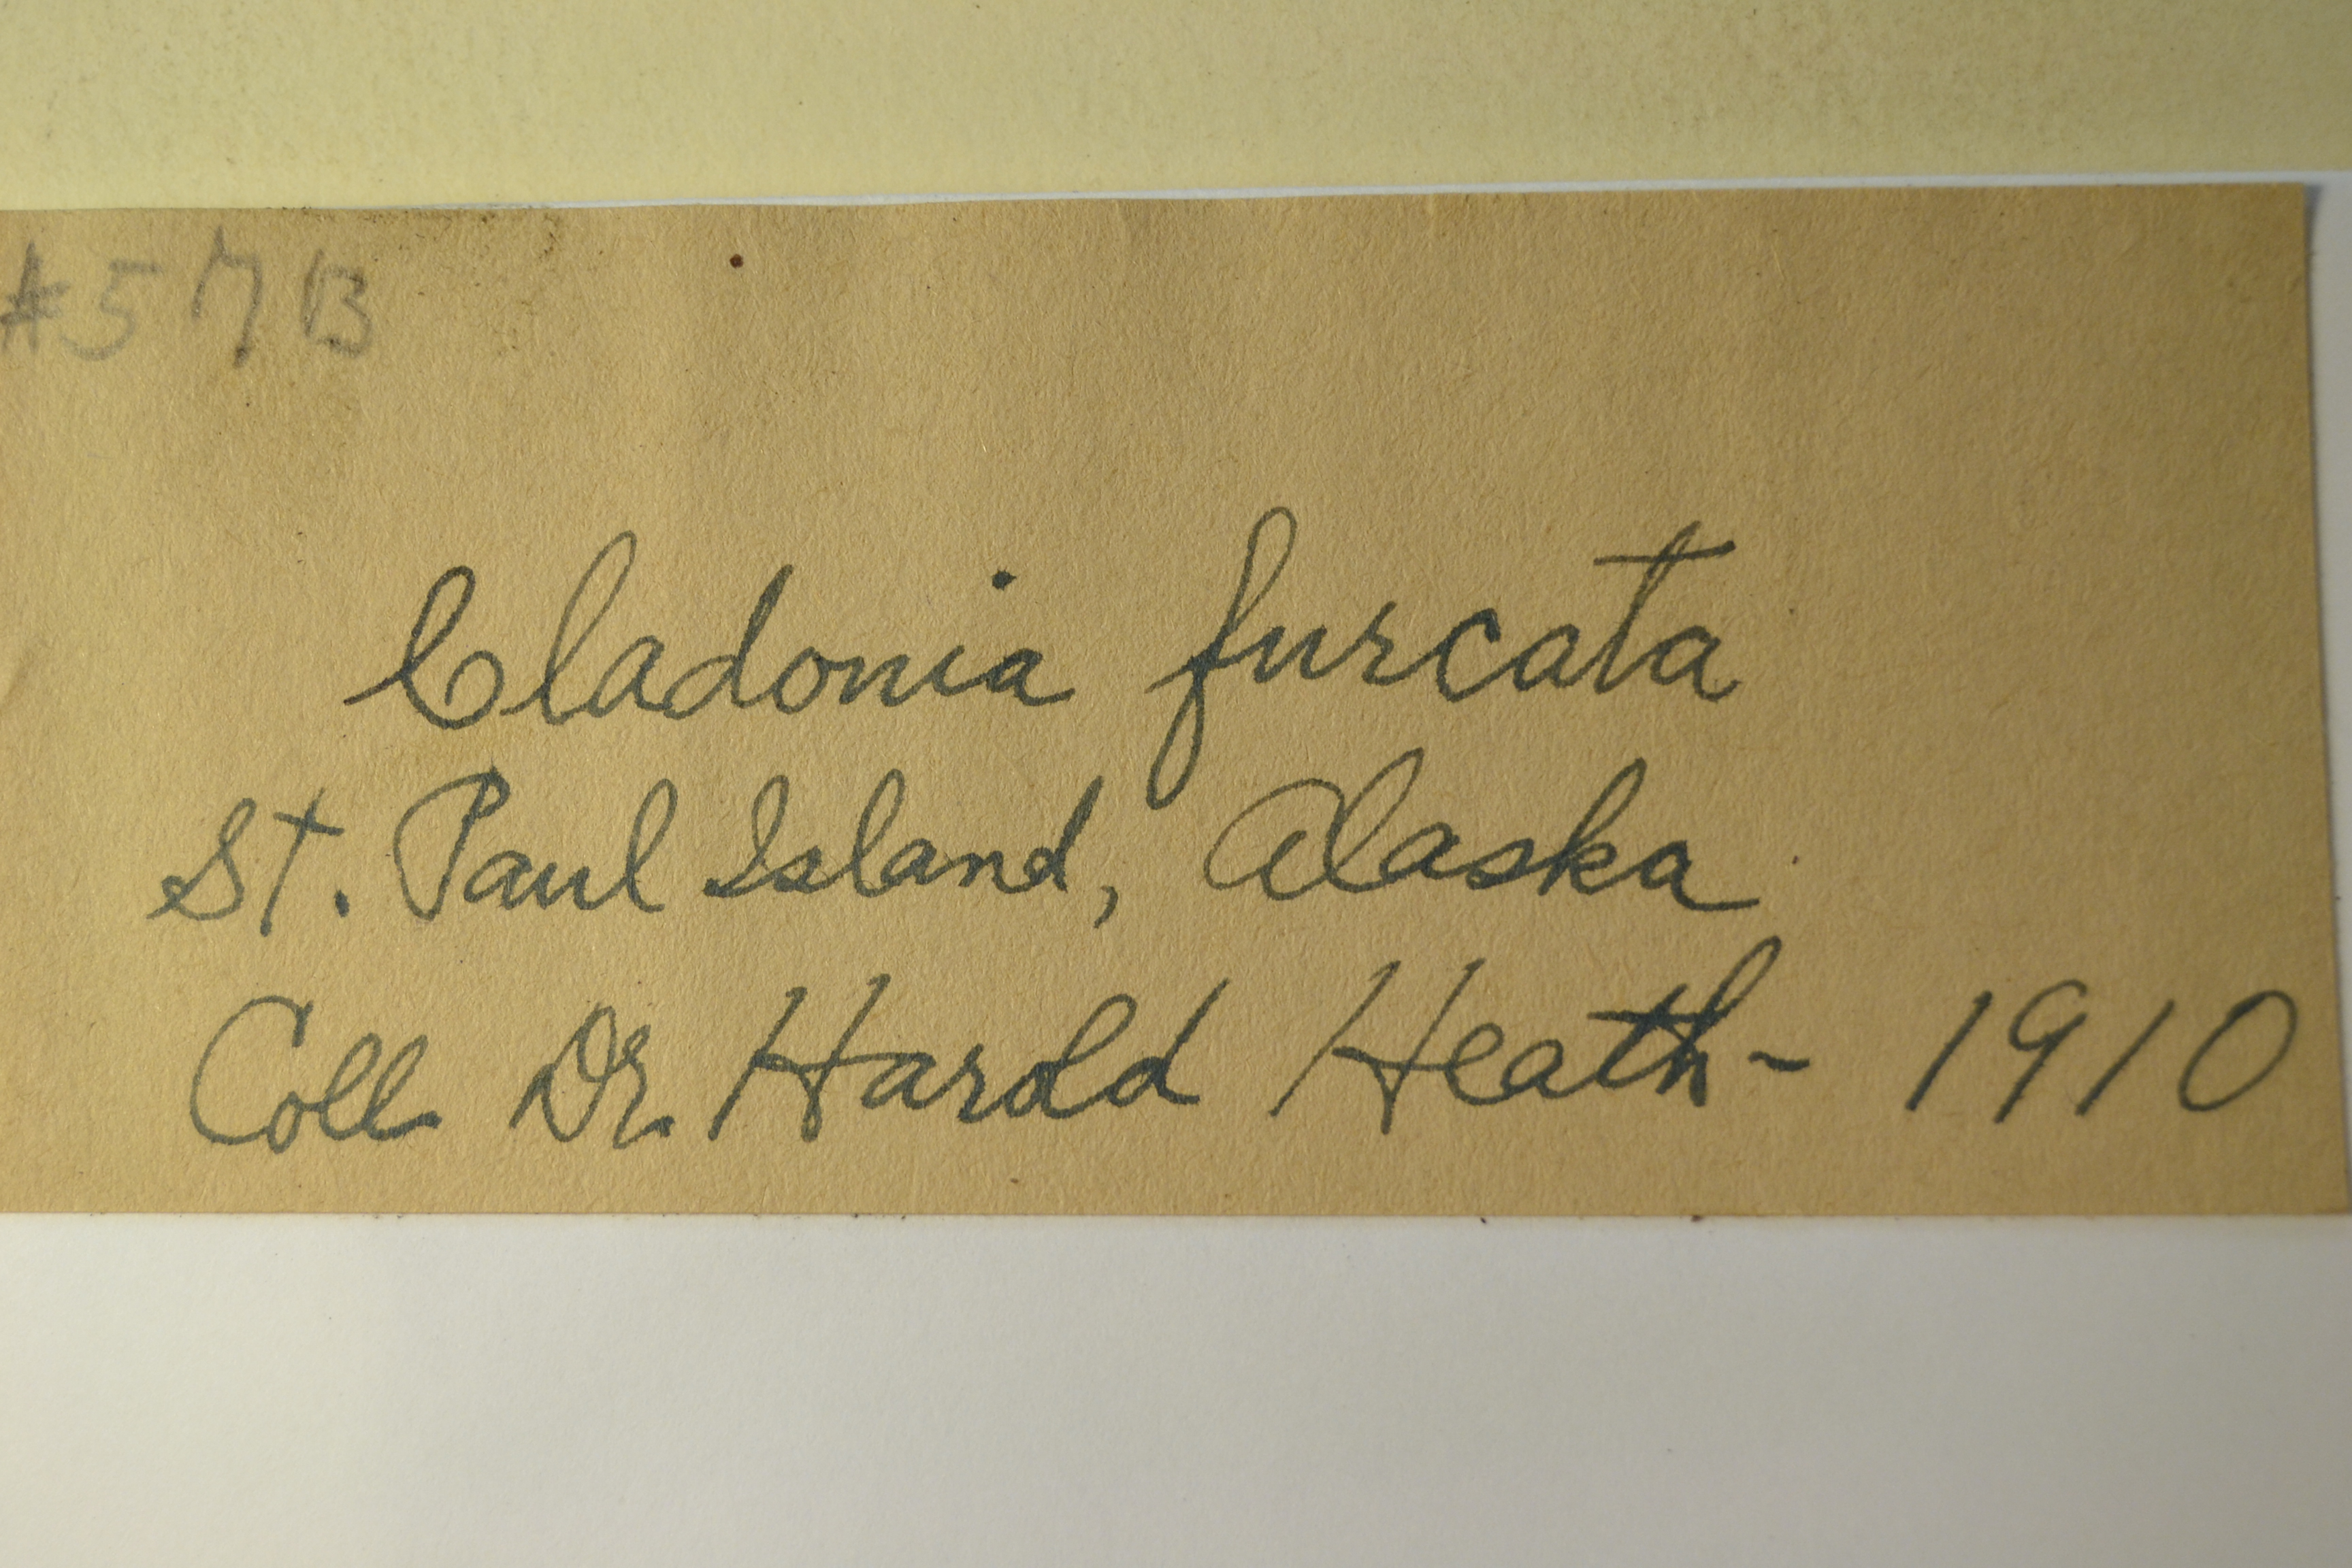 #57B
Cladonia furcata
St. Paul Island, Alaska
Coll. Dr. Harold Heath - 1910